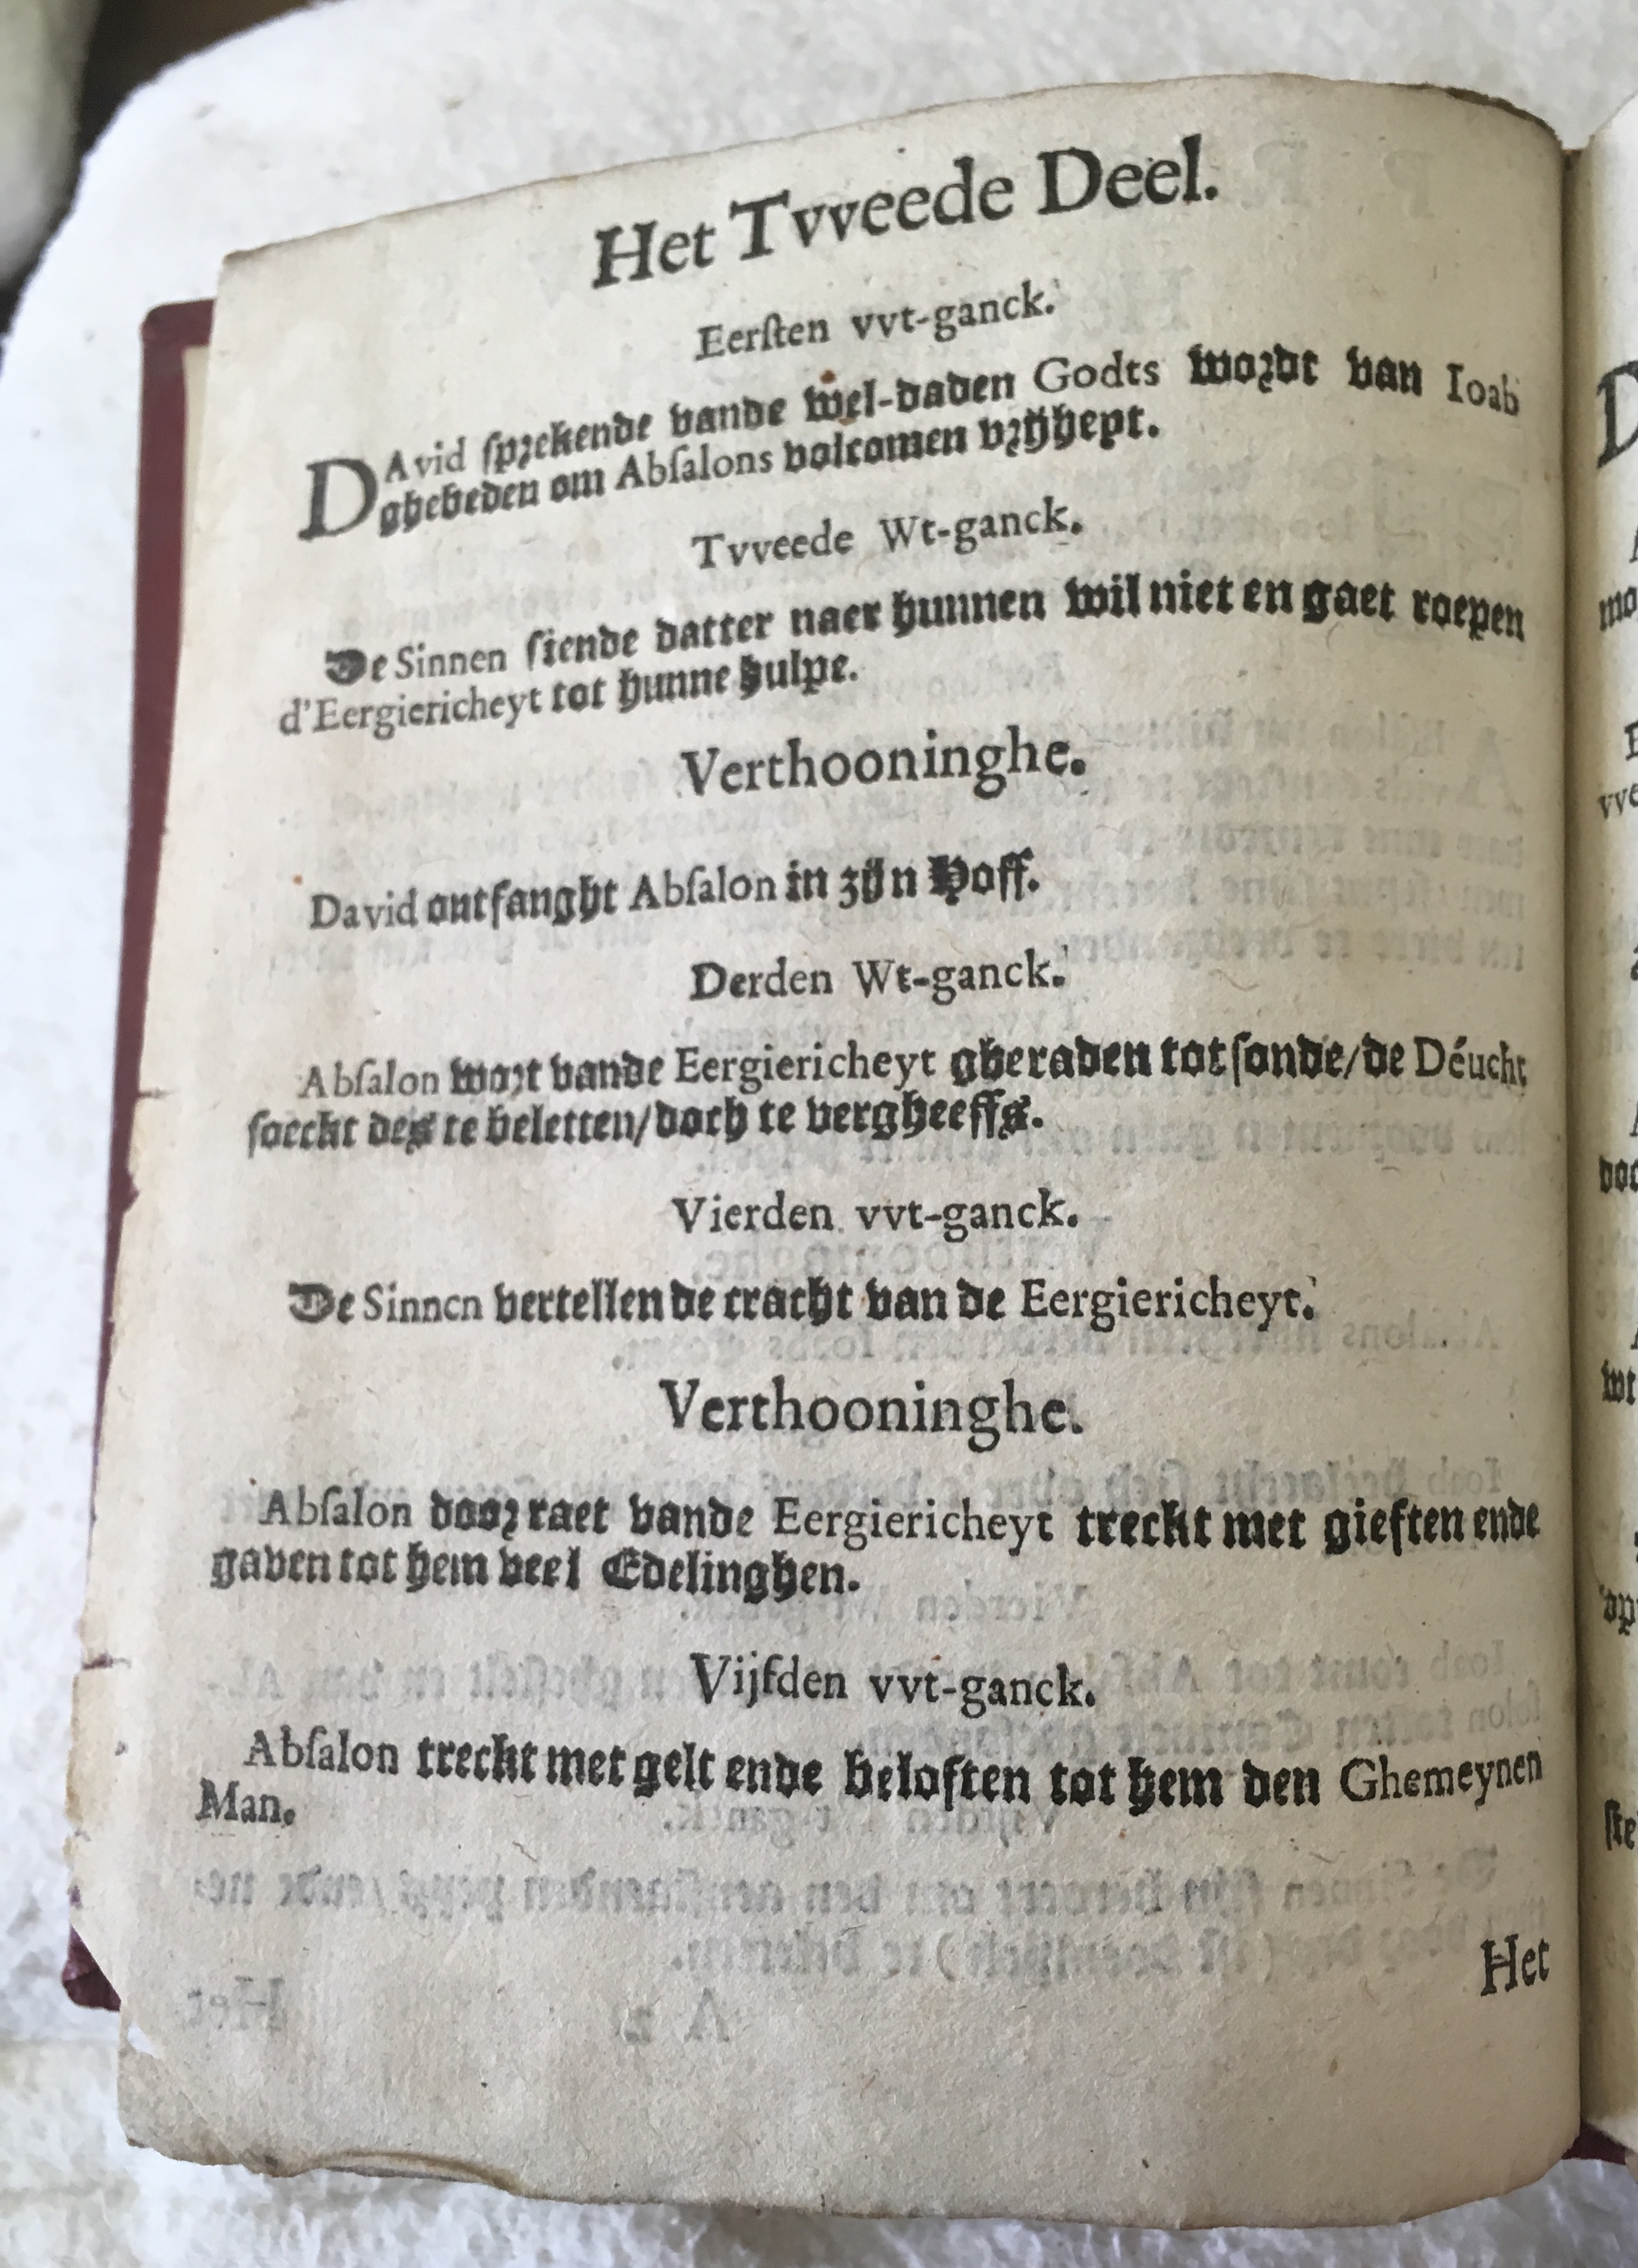 Het Tvveede Deel.
Eerſten vvt-ganck.
DAvid ſprekende vande wel-daden Godts wordt van Ioab
ghebeden om Abſalons volcomen vrijheyt.
Tvveede Wt-ganck.
De Sinnen ſiende datter naer hunnen wil niet en gaet roepen
d'Eergiericheyt tot hunne hulpe.
Verthooninghe.
David ontfanght Abſalon in zijn Hoff.
Derden Wt-ganck.
Abſalon wort vande Eergiericheyt gheraden tot ſonde/de Déucht
ſoeckt des te beletten/doch te vergheeffs.
Vierden vvt-ganck.
De Sinnen vertellen de cracht van de Eergiericheyt.
Verthooninghe.
Abſalon door raet vande Eergiericheyt treckt met gieften ende
gaven tot hem veel Edelinghen.
Vijfden vvt-ganck.
Abſalon treckt met gelt ende beloften tot hem den Ghemeynen
Man.
Het